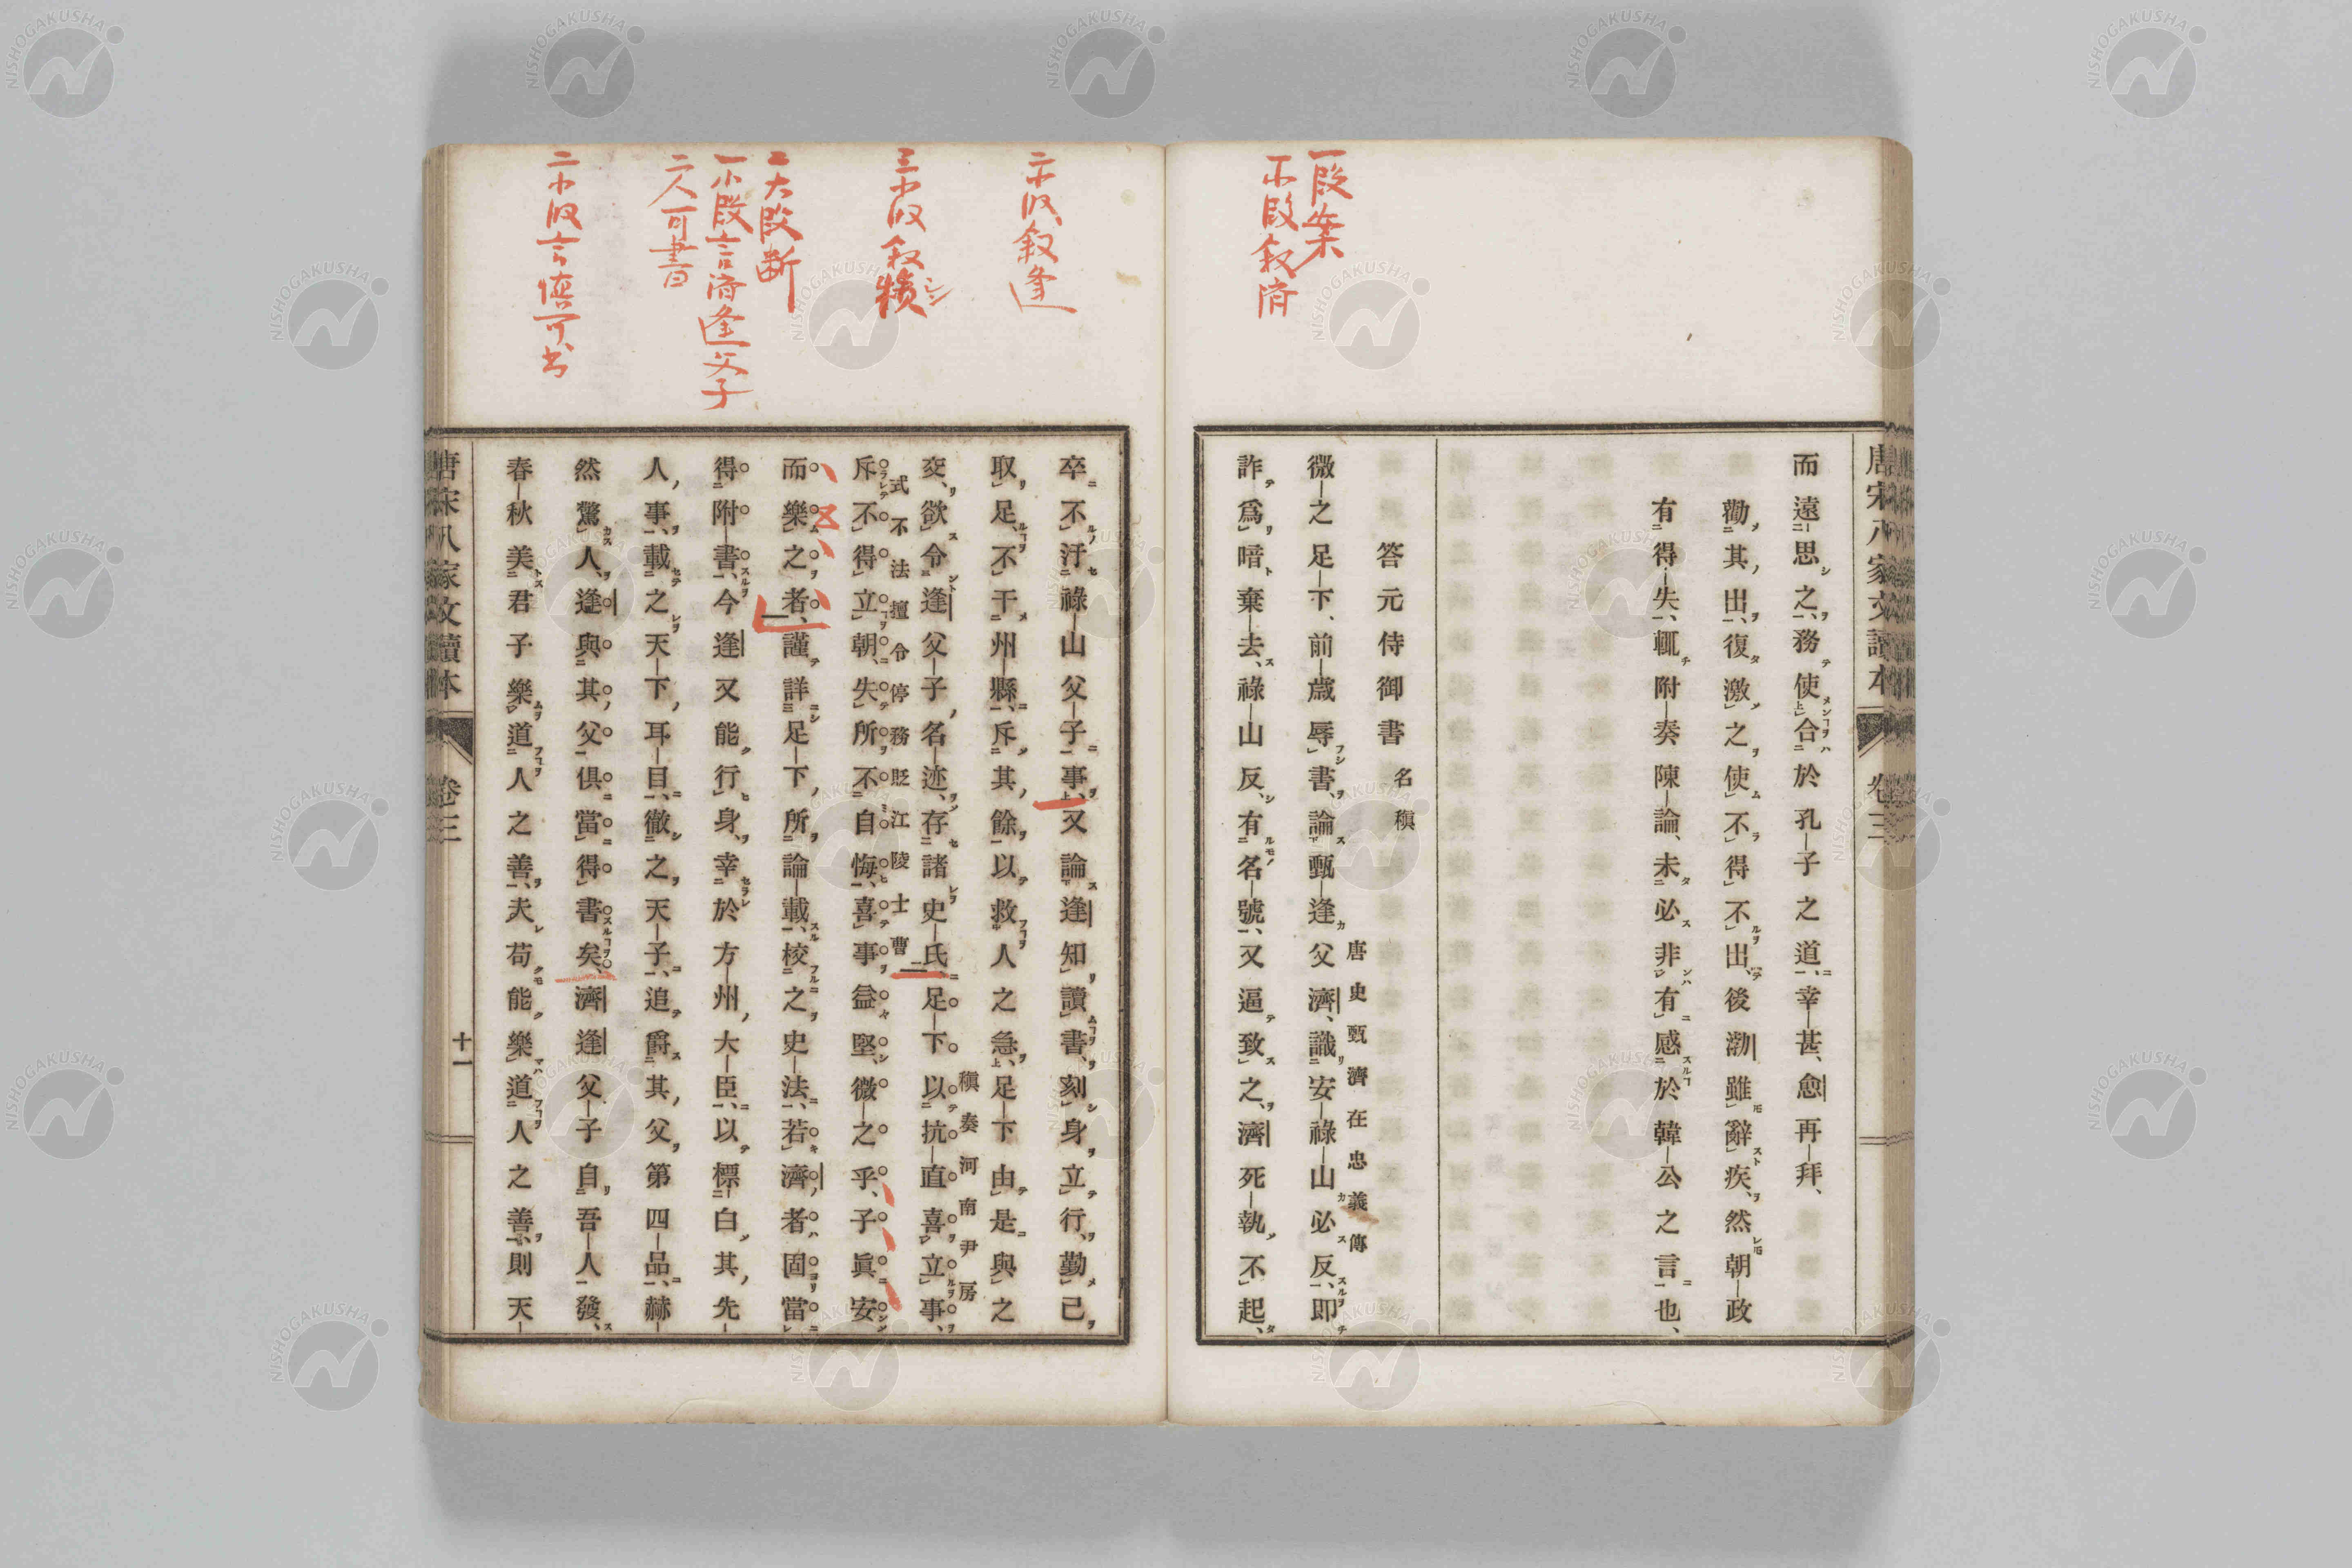 唐宋八家文讀本
卷三
而遠思之、務使合於孔子之道、幸甚、愈再拜、
勸其出、復激之使不得不出、後渤雖辭疾、然朝政
有得失、輒附奏陳論、未必非有感於韓公之言也、
答元侍御書
名稹
唐史甄濟在忠義傳
微之足下、前歲辱書、論甄逢父濟、識安祿山必反、即
詐爲喑棄去、祿山反、有名號、又逼致之、濟死執不起、
一段案
一小段叙濟
卒不汙祿山父子事、又論逢知讀書、刻身立行、勤己
取足、不干州縣、斥其餘以救人之急、足下由是與之
稹奏河南尹房
交、欲令逢父子名迹、存諸史氏、足下以抗直喜立事、
式不法擅令停務貶江陵士曹
斥不得立朝、失所不自悔、喜事益堅、微之乎、子眞安
而樂之者、謹詳足下所論載、校之史法、若濟者、固當
得附書、今逢又能行身、幸於方州大臣、以標白其先
人事、載之天下耳目、徹之天子、追爵其父第四品、赫
然驚人、逢與其父俱當得書矣、濟逢父子自吾人發、
春秋美君子樂道人之善、夫苟能樂道人之善、則天
二小段叙逢
三小段叙稹
二大段斷
一小段言濟逢父子
二人可書
二小段言慎可書
唐宋八家文讀本
卷三
十一
NISHOGAKUSHA